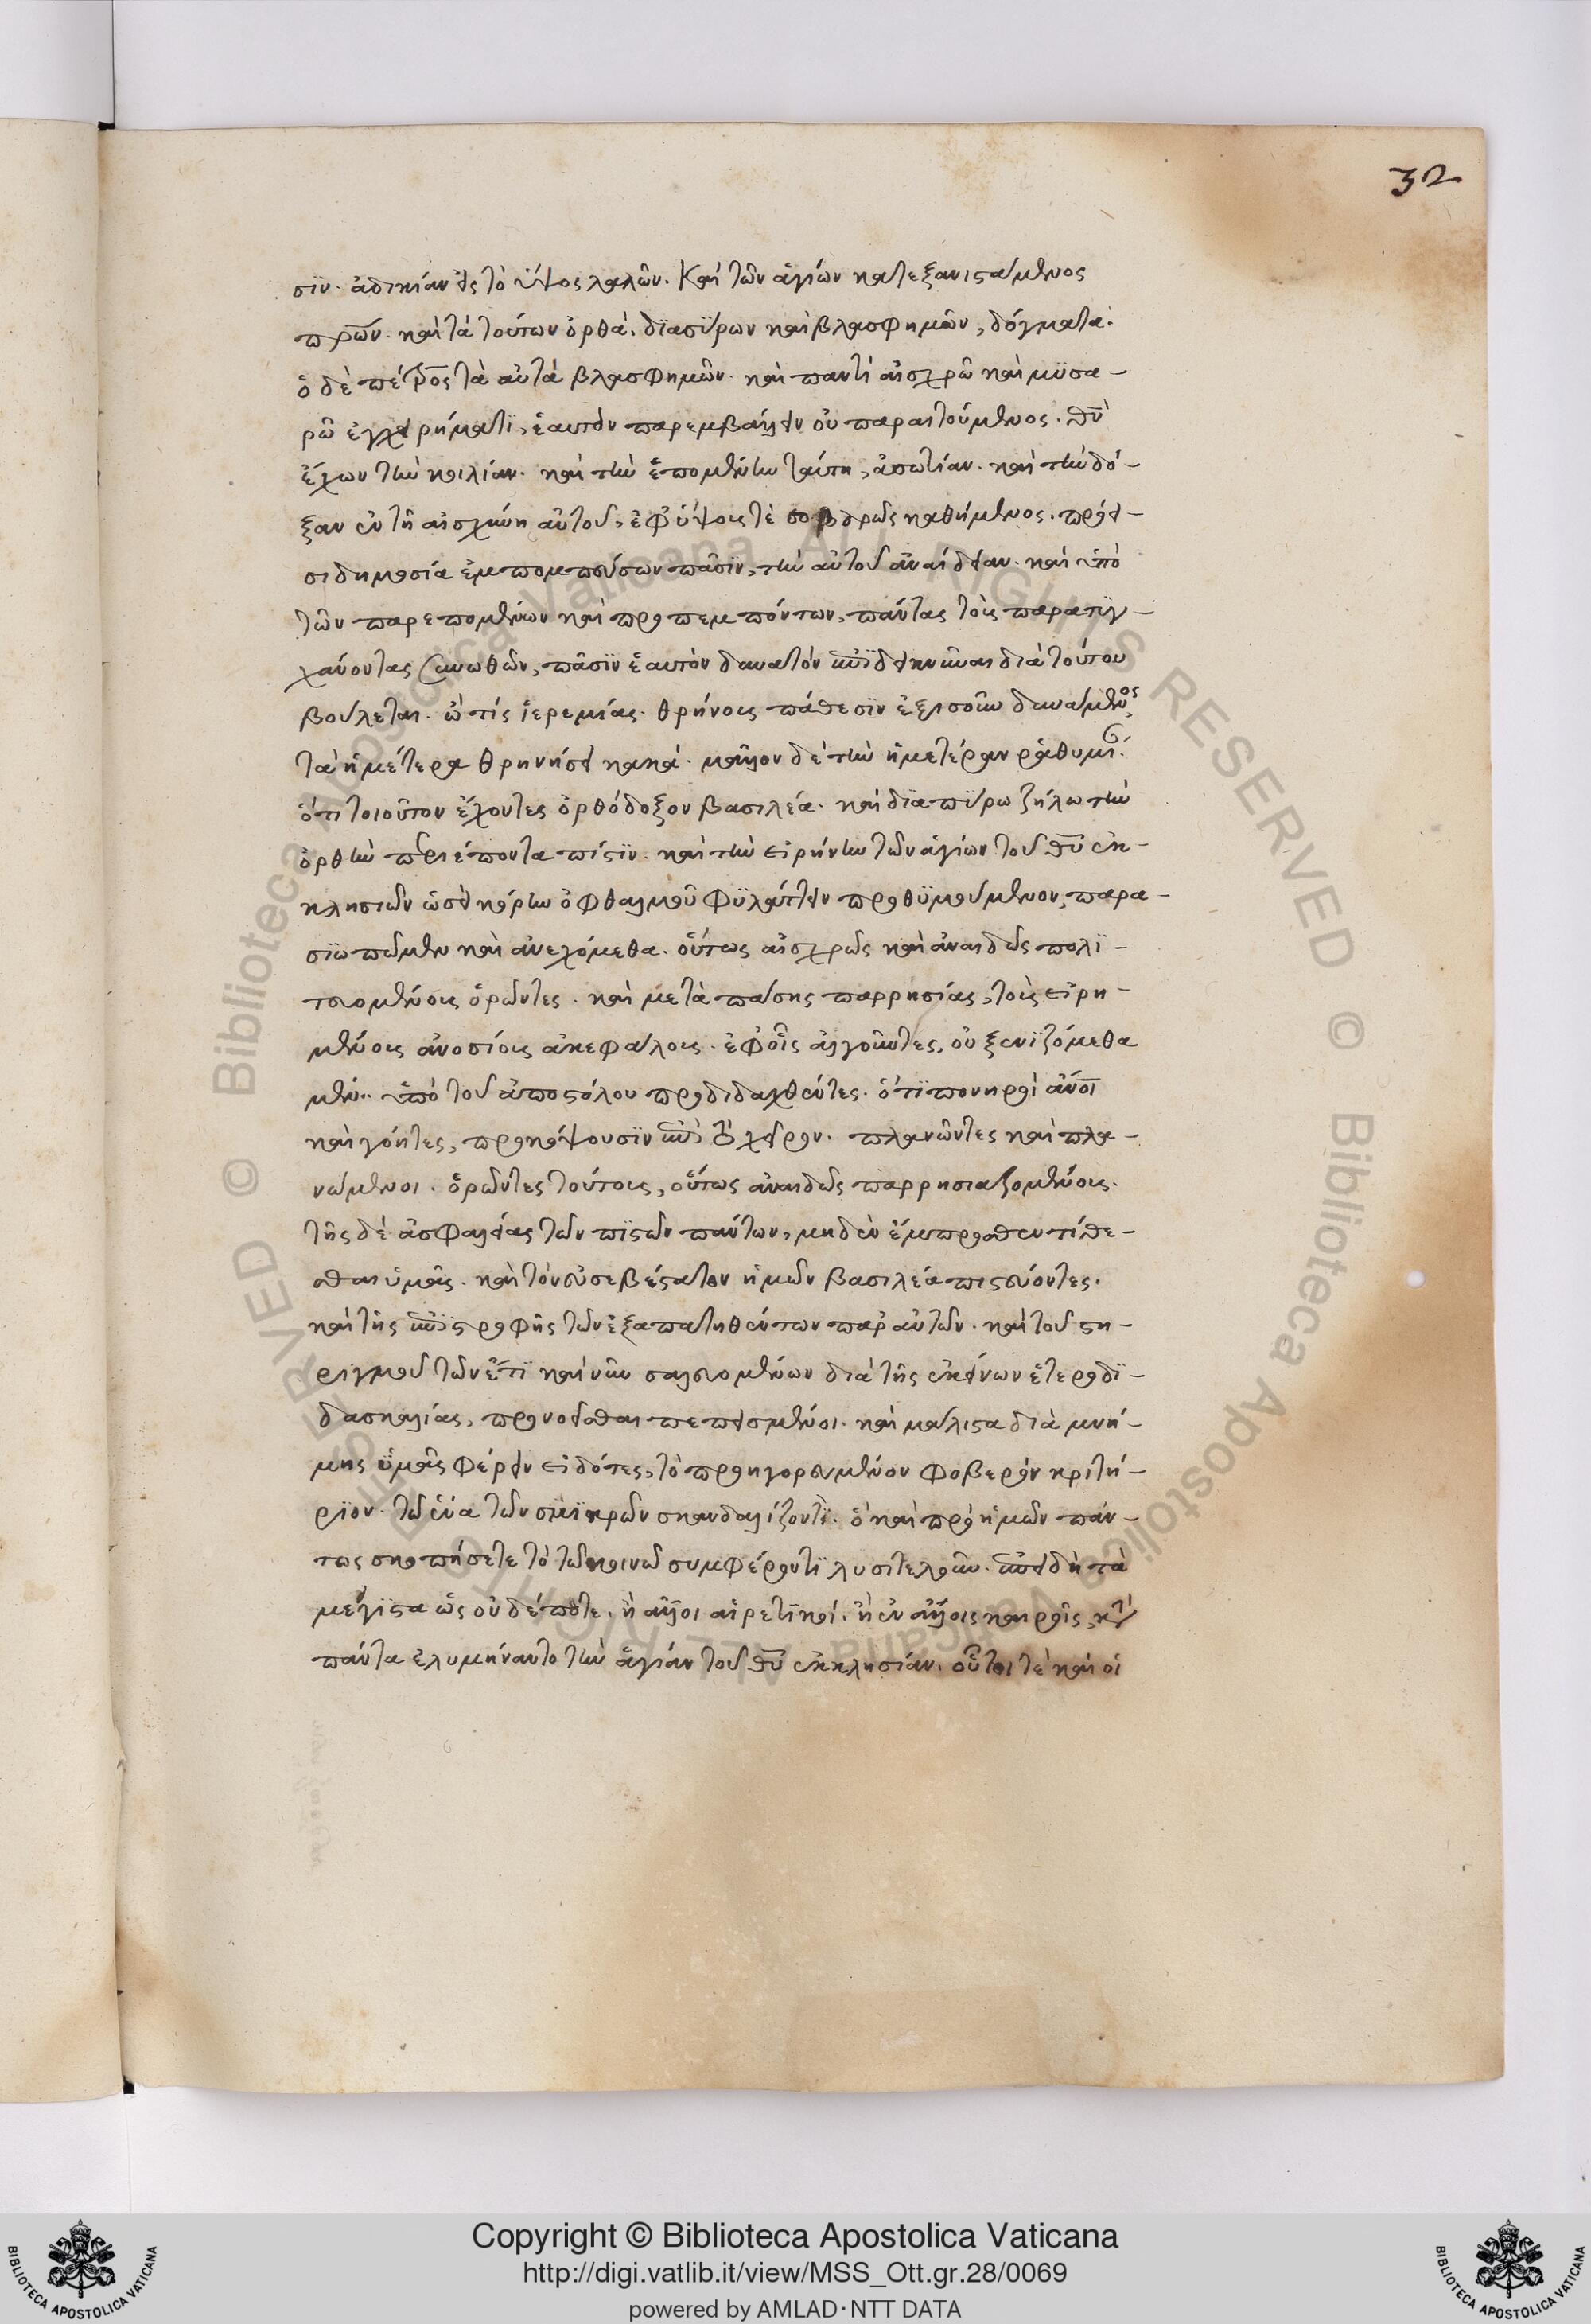 32
σϊν. ἀδικίαν εἰς τὸ ὕψος λαλῶν. Καὶ τῶν ἁγίων κατεξανιστάμενος
πρων. καὶ τὰ τούτων ὀρθὰ. διασύρων καὶ βλασφημῶν, δόγματα.
ὁ δὲ πέτρος τὰ αὐτὰ βλασφημῶν. καὶ παντὶ αἰσχρῶ καὶ μϋσα-
ρῶ ἐγχειρήματι, ἑαυτὸν παρεμβάλλειν οὐ παραιτούμενος. θν
ἔχων τὴν κοιλίαν. καὶ τὴν ἑπομένην ταύτη, ἀσωτίαν. καὶ τὴν δό-
ξαν ἐν τῆ αἰσχύνη αὐτοῦ, ἐφ' ὕψους τὲ καθήμενος. πρόει-
σι δημοσία ἐμπομπεύων πᾶσϊν, τὴν αὐτοῦ ἀναίδειαν. καὶ ὑπὸ
τῶν παρεπομένων καὶ προπεμπόντων, πάντας τοὺς παρατυγ-
χάνοντας συνωθῶν, πᾶσϊν ἑαυτὸν δυνατὸν ἐπϊδεικνῦναι διὰ τούτου
βούλεται. ὢ τίς ἱερεμίας. θρήνοις πάθεσϊν ἐξισοῦν δυνάμενος
τὰ ἡμέτερα θρηνήσει κακά. μᾶλλον δὲ τὴν ἡμετέραν ῥαθυμί.
ὅτι τοιοῦτον ἔχοντες ὀρθόδοξον βασιλέα. καὶ διαπύρω ζήλω τὴν
ὀρθὴν περιέποντα πίστϊν. καὶ τὴν εἰρήνην τῶν ἁγίων τοῦ θυ ἐκ-
κλησιῶν ὡσεὶ κόρην ὀφθαλμοῦ φϋλάττειν προθϋμούμενον, παρα-
σϊωπῶμεν καὶ ἀνεχόμεθα. οὕτως αἰσχρῶς καὶ ἀναιδῶς πολϊ-
τευομένους ὁρῶντες. καὶ μετὰ πάσης παρρησίας, τοὺς εἰρη-
μένους ἀνοσίους ἀκεφάλους. ἐφ' οἷς ἀλγοῦντες, οὐ ξενιζόμεθα
μὲν. ὑπὸ τοῦ ἀποστόλου προδιδαχθέντες. ὅτϊ πονηροὶ ἄνοι
καὶ γόητες, προκόψουσϊν ἐπὶ τὸ χεῖρον. πλανῶντες καὶ πλα-
νώμενοι. ὁρῶντες τούτους, οὕτως ἀναιδῶς παρρησιαζομένους.
τῆς δὲ ἀσφαλείας τῶν πϊστῶν πάντων, μηδὲν ἔμπροσθεν τίθε-
σθαι ὑμᾶς. καὶ τὸν εὐσεβέστατον ἡμῶν βασιλέα πιστεύοντες.
καὶ τῆς ἐπϊστροφῆς τῶν ἐξαπατηθέντων παρ' αὐτῶν. καὶ τοῦ στη-
ριγμοῦ τῶν ἔτϊ καὶ νῦν σαλευομένων διὰ τῆς ἐκείνων ἑτεροδϊ-
δασκαλίας, προνοεῖσθαι πεπεισμένοι. καὶ μάλιστα διὰ μνή-
μης ὑμᾶς φέρειν εἰδότες, τὸ προηγορευμένον φοβερὸν κριτή-
ριον. τῶ ἕνα τῶν σμϊκρῶν σκανδαλίζοντϊ. ὃ καὶ πρὸ ἡμῶν πάν-
τως σκοπήσετε τὸ τῶ κοινῶ συμφέροντϊ λυσϊτελοῦν. ἐπεὶ δὴ τὰ
μέγϊστα ὡς οὐδέποτε. ἢ ἄλλοι αἱρετϊκοί. ἢ ἐν ἄλλοις καιροῖς, κτ
πάντα ἐλυμήναντο τὴν ἁγίαν τοῦ θυ ἐκκλησίαν. οὗτοι τὲ καὶ οἱ
Copyright © Biblioteca Apostolica Vaticana
http://digi.vatlib.it/view/MSS_Ott.gr.28/0069
powered by AMLAD·NTT DATA